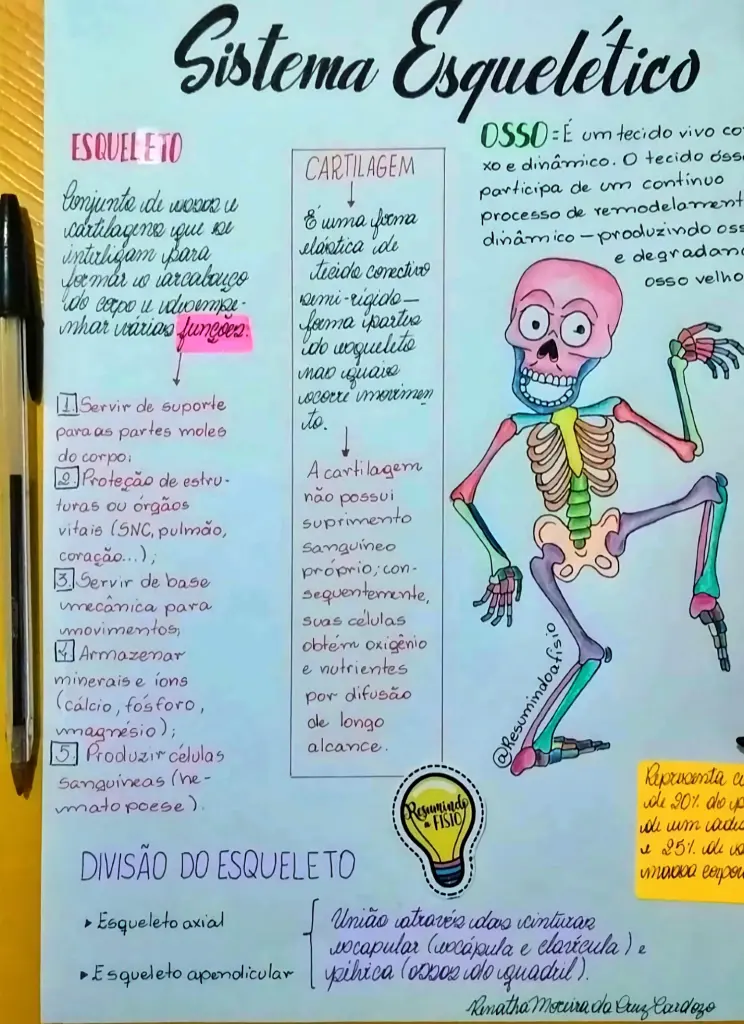 Sistema Esquelético
ESQUELETO
Conjunto de ossos e
cartilagens que se
interligam para
formar o arcabouço
do corpo e desempe-
nhar várias funções.
1 Servir de suporte
para as partes moles
do corpo;
2 Proteção de estru-
turas ou órgãos
vitais (SNC, pulmão,
coração...);
3 Servir de base
mecânica para
movimentos;
4 Armazenar
minerais e íons
(cálcio, fósforo,
magnésio);
5. Produzir células
sanguíneas (he-
mato poese).
CARTILAGEM
É uma forma
elástica de
tecido conectivo
semi-rígido—
forma partes
do esqueleto
nas quais
ocorre movimen
to.
A cartilagem
não possui
suprimento
sanguíneo
próprio; con-
sequentemente,
suas células
obtém oxigênio
e nutrientes
por difusão
de longo
alcance.
OSSO = É um tecido vivo co
xo e dinâmico. O tecido ósse
participa de um contínuo
processo de remodelament
dinâmico — produzindo oss
e degradan
osso velho
@Resumindoafisio
Resumindo
a FISIO
Representa c
de 20% do p
de um
e 25% de
massa corpo
DIVISÃO DO ESQUELETO
▸ Esqueleto axial
▸ Esqueleto apendicular
União através das cinturas
escapular (escápula e clavícula) e
pélvica (ossos do quadril).
Renatha Moreira da Cruz Cardozo